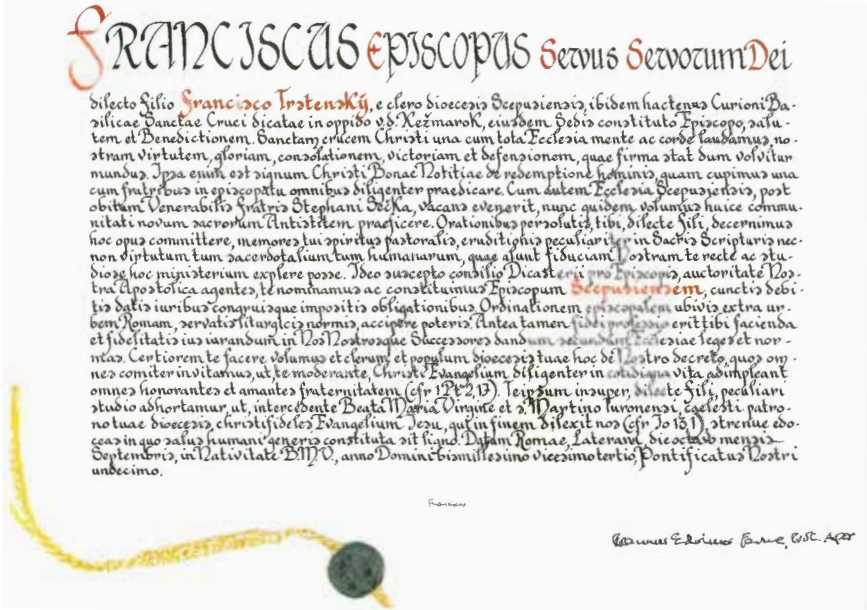 FRANCISCUS EPISCOPUS Servus Servorum Dei
dilecto Filio Francisco Trstenský, e clero dioecesis Scepusiensis, ibidem hactenus Curioni Ba-
silicae Sanctae Cruci dicatae in oppido v.d. Kežmarok, eiusdem Sedis constituto Episcopo, salu-
tem et Benedictionem. Sanctam crucem Christi una cum tota Ecclesia mente ac corde laudamus, no-
stram virtutem, gloriam, consolationem, victoriam et defensionem, quae firma stat dum volvitur
mundus. Ipsa enim est signum Christi Bonae Notitiae de redemptione hominis, quam cupimus una
cum fratribus in episcopatu omnibus diligenter praedicare. Cum autem Ecclesia Scepusiensis, post
obitum Venerabilis Fratris Stephani Sečka, vacans evenerit, nunc quidem volumus huice commu-
nitati novum sacrorum Antistitem praeficere. Orationibus persolutis, tibi, dilecte fili, decernimus
hoc opus committere, memores tui spiritus pastoralis, eruditionis peculiariter in Sacris Scripturis nec-
non virtutum tum sacerdotalium tum humanarum, quae aiunt fiduciam Nostram te recte ac stu-
diose hoc ministerium explere posse. Ideo suscepto consilio Dicasterii pro Episcopis, auctoritate Nos-
tra Apostolica agentes, te nominamus ac constituimus Episcopum Scepusiensem, cunctis debi-
tis datis iuribus congruisque impositis obligationibus. Ordinationem episcopalem ubivis extra ur-
bem Romam, servatis liturgicis normis, accipere poteris. Antea tamen fidei professio erit tibi facienda
et fidelitatis ius iurandum in Nos Nostrosque Successores dandum secundum Ecclesiae leges et nor-
mas. Certiorem te facere volumus et clerum et populum dioecesis tuae hoc de Nostro decreto, quos om-
nes comiter invitamus, ut, te moderante, Christi Evangelium diligenter in cotidiana vita adimpleant
omnes honorantes et amantes fraternitatem (cfr 1Pt 2,13). Teipsum insuper, dilecte Fili, peculiari
studio adhortamur, ut, intercedente Beata Maria Virgine et s. Martino Turonensi, caelesti patro-
no tuae dioecesis, christifideles Evangelium Iesu, qui in finem dilexit nos (cfr Io 13,1), strenue edo-
ceas in quo salus humani generis constituta sit ligno. Datum Romae, Laterani, die octavo mensis
Septembris, in Nativitate B.M.V., anno Domini bismillesimo vicesimo tertio, Pontificatus Nostri
undecimo.
Franciscus